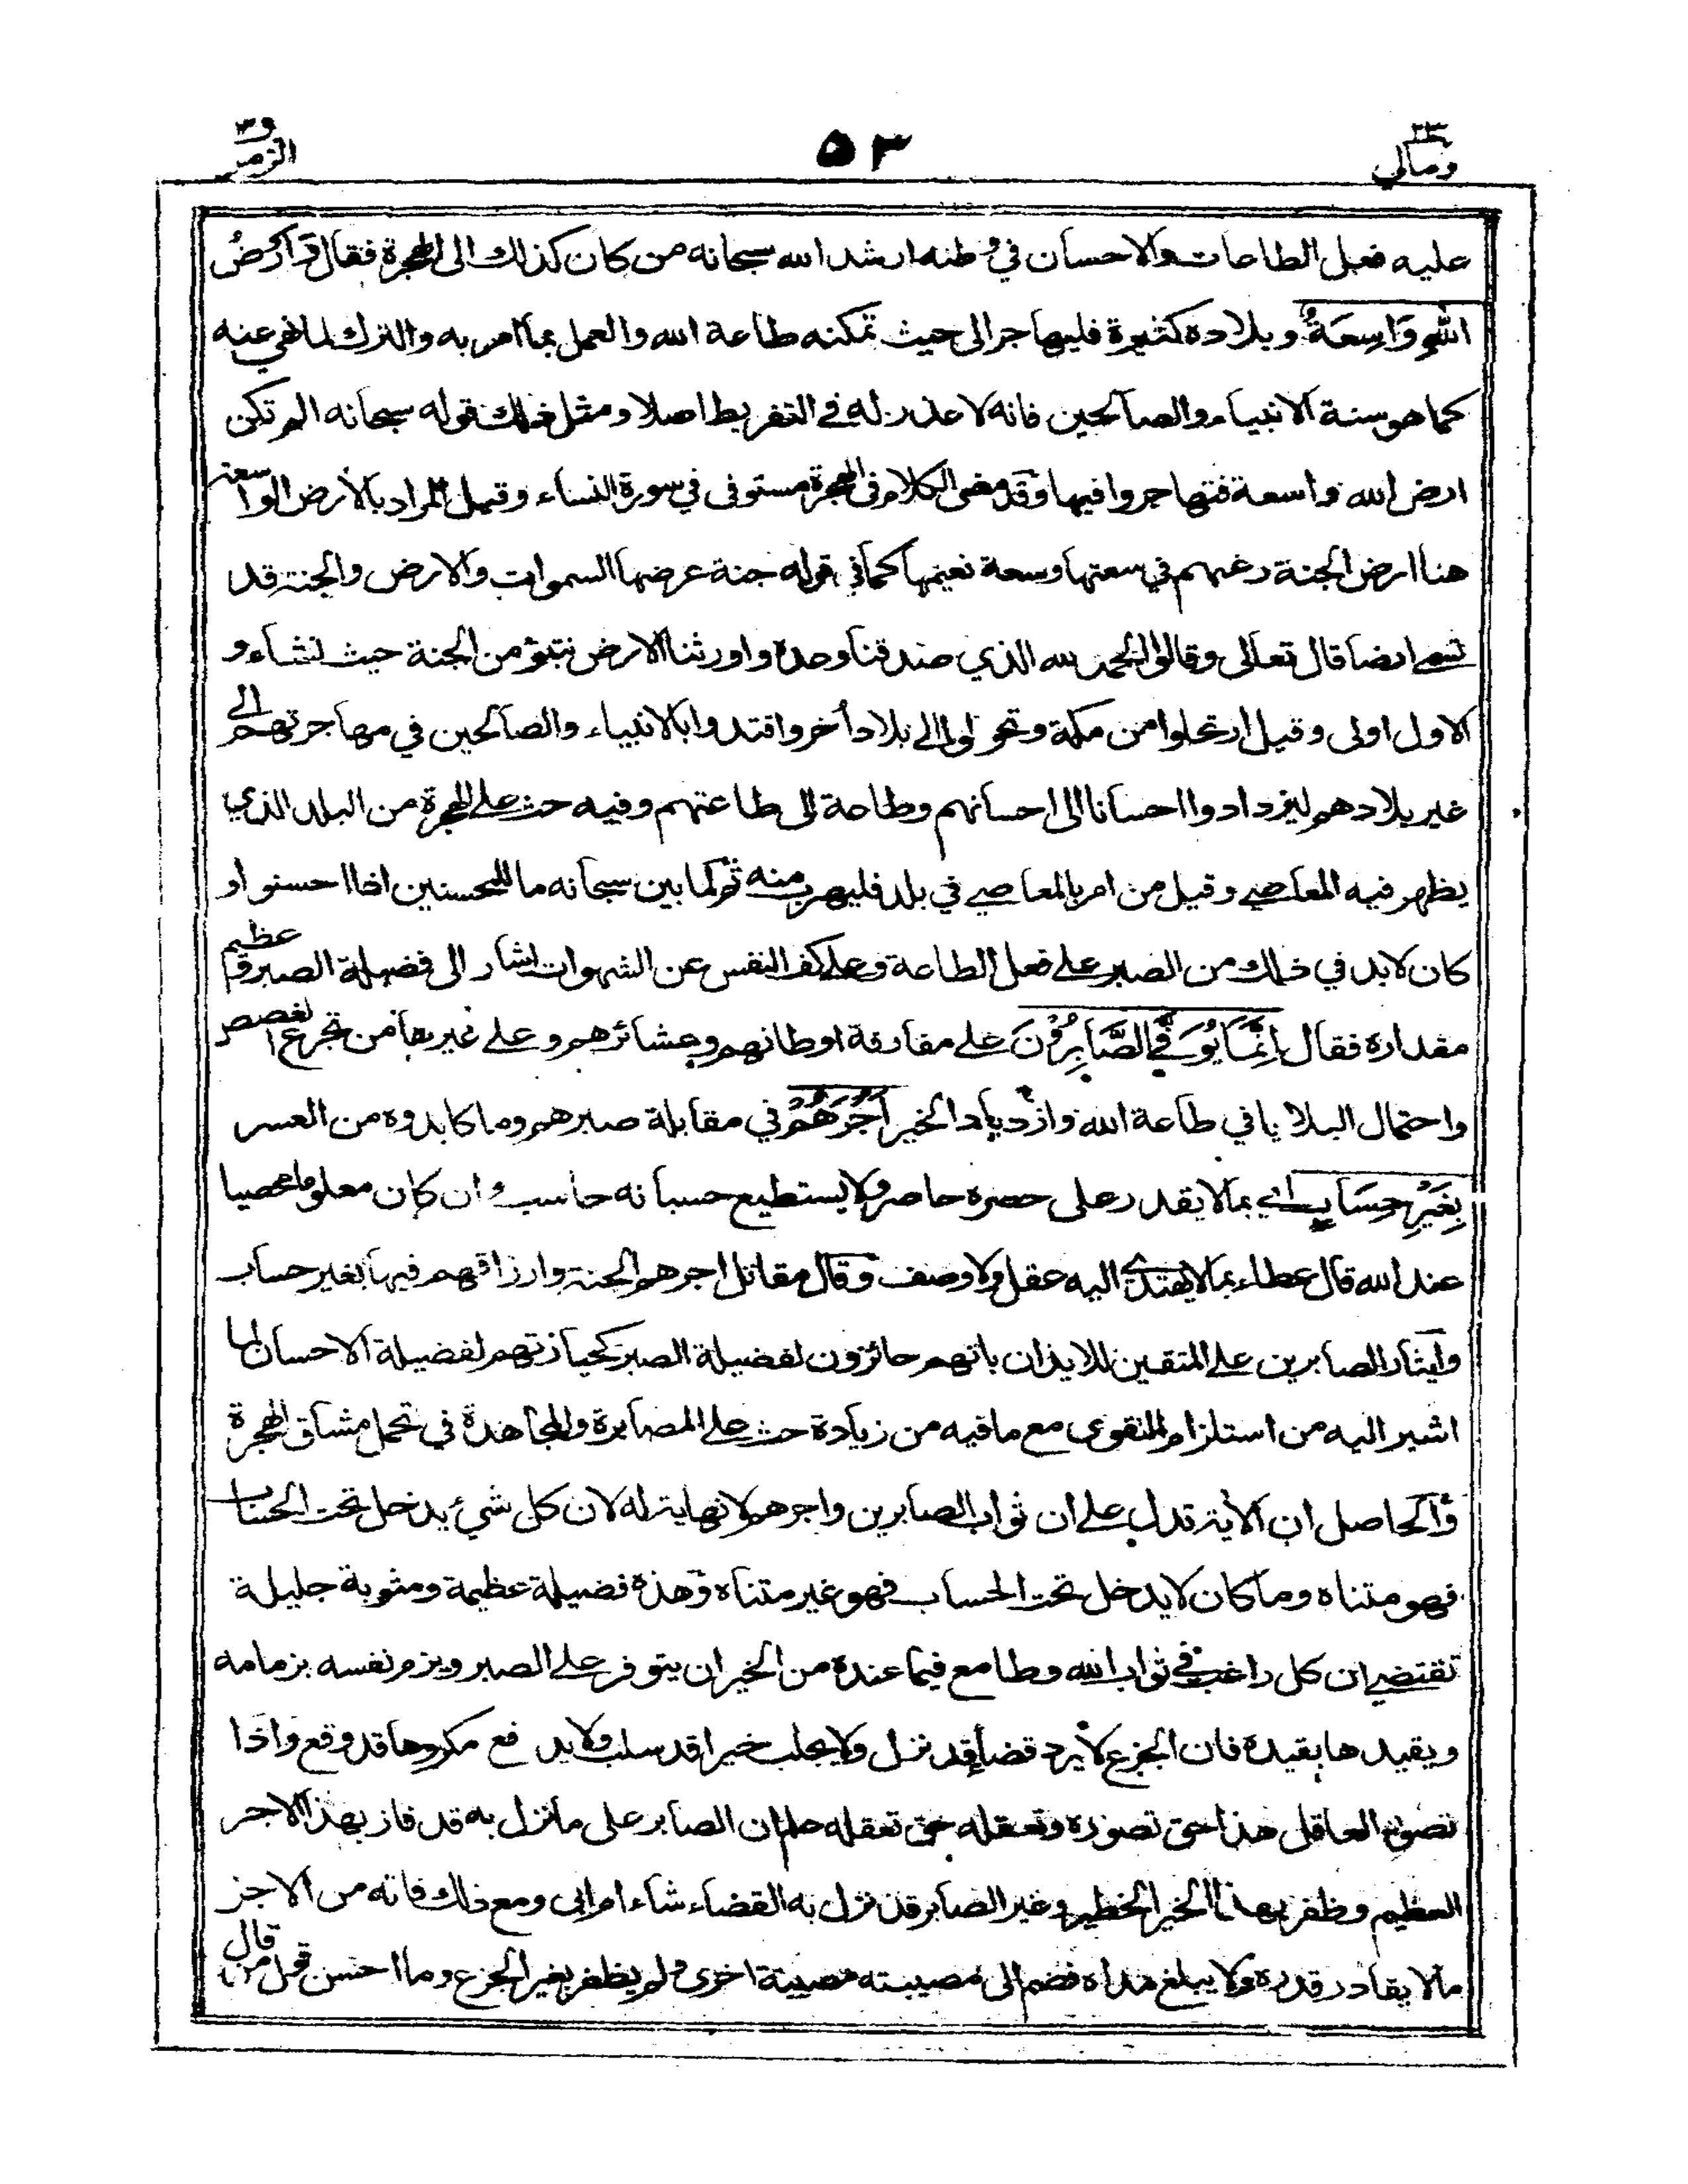 ٢٣
ومالي
٥٣
٣٩
الزمر
عليه فعل الطاعات والاحسان في وطنه ارشد الله سبحانه من كان كذلك الى الهجرة فقال وَاَرْضُ
اللهِ وَاسِعَةٌ وبلاده كثيرة فليهاجر الى حيث تمكنه طاعة الله والعمل بما امر به والترك لما نهى عنه
كما هو سنة الانبياء والصالحين فانه لا عذر له في التفريط اصلا ومثل ذلك قوله سبحانه الم تكن
ارض الله واسعة فتهاجروا فيها وقد مضى الكلام في الهجرة مستوفى في سورة النساء وقيل المراد بالارض الواسعة
هنا ارض الجنة رغبهم في سعتها وسعة نعيمها كما في قوله جنة عرضها السموات والارض والجنة قد
تسمى ارضا قال تعالى وقالوا الحمد لله الذي صدقنا وعده واورثنا الارض نتبوّء من الجنة حيث نشاء و
الاول اولى وقيل ارتحلوا من مكة وتحولوا الى بلاد أخر واقتدوا بالانبياء والصالحين في مهاجرتهم الى
غير بلادهم ليزدادوا احسانا الى احسانهم وطاعة الى طاعتهم وفيه حث على الهجرة من البلد الذي
يظهر فيه المعاصي وقيل من امر بالمعاصي في بلد فليهرب منه ثم لما بين سبحانه ما للمحسنين اذا احسنوا و
كان لابد في ذلك من الصبر على فعل الطاعة وعلى كف النفس عن الشهوات اشار الى فضيلة الصبر وعظيم
مقداره فقال اِنَّمَا يُوَفَّى الصَّابِرُوْنَ على مفارقة اوطانهم وعشائرهم وعلى غيرها من تجرع الغصص
واحتمال البلايا في طاعة الله وازدياد الخير اَجْرَهُمْ في مقابلة صبرهم وما كابدوه من العسر
بِغَيْرِ حِسَابٍ اي بما لا يقدر على حصره حاصر ولا يستطيع حسبانه حاسب وان كان معلوما محصيا
عند الله قال عطاء بما لا يهتدي اليه عقل ولا وصف وقال مقاتل اجرهم الجنة وارزاقهم فيها بغير حساب
وايثار الصابرين على المتقين للايذان بانهم حائزون لفضيلة الصبر كحيازتهم لفضيلة الاحسان لما
اشير اليه من استلزام التقوى مع ما فيه من زيادة حث على المصابرة والمجاهدة في تحمل مشاق الهجرة
والحاصل ان الاية تدل على ان ثواب الصابرين واجرهم لا نهاية له لان كل شيء يدخل تحت الحساب
فهو متناه وما كان لا يدخل تحت الحساب فهو غير متناه وهذه فضيلة عظيمة ومثوبة جليلة
تقتضي ان كل راغب في ثواب الله وطامع فيما عنده من الخير ان يتوفر على الصبر ويزم نفسه بزمامه
ويقيدها بقيده فان الجزع لا يرد قضاء قد نزل ولا يجلب خيرا قد سلب ولا يدفع مكروها قد وقع واذا
تصور العاقل هذا حق تصوره وتعقله حق تعقله علم ان الصابر على ما نزل به قد فاز بهذا الاجر
العظيم وظفر بهذا الخير الخطير وغير الصابر قد نزل به القضاء شاء ام ابى ومع ذلك فاته من الاجر
ما لا يقادر قدره ولا يبلغ مداه فضم الى مصيبته مصيبة اخرى ولم يظفر بغير الجزع وما احسن قول من قال